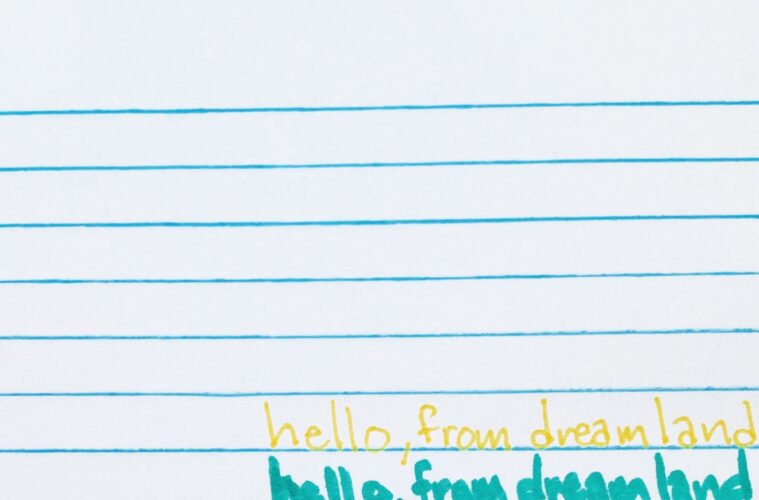 hello, from dreamland
hello, from dreamland